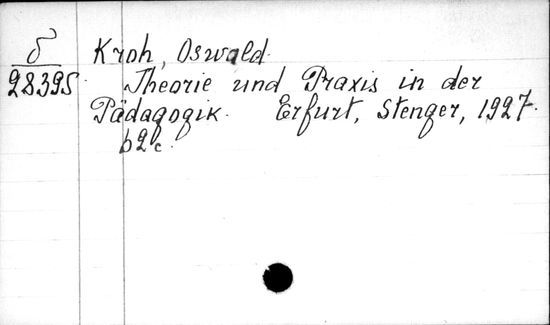 б Kroh, Oswald.
28395 Theorie und Praxis in der
Pädagogik. Erfurt, Stenger, 1927.
62 c.